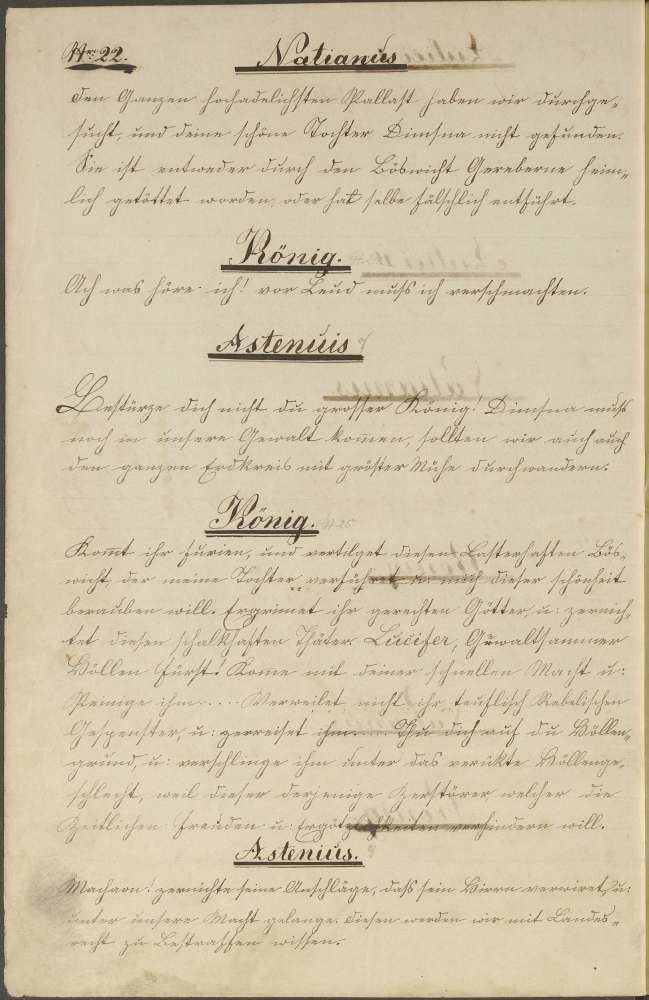 Nr: 22. Natianus
Den Ganzen hochadelichsten Pallast haben wir durchge„
sucht, und deine schöne Tochter Dimsna nicht gefunden.
Sie ist entweder durch den Böswicht Gereberne heim„
lich getöttet worden, oder hat selbe fälschlich entführt.
König.
Ach was höre ich! vor Leud muß ich verschmachten.
Astenuis
Bestürze dich nicht du grosser König! Dimsna muß
noch in unsere Gewalt komen, sollten wir auch auch
den ganzen Erdkreis mit größter Mühe durchwandern.
König.
Komt ihr Furien, und vertilget diesen Lasterhaften Bös„
wicht, der meine Tochter verführet u: mich dieser schönheit
berauben will. Ergrimet ihr gerechten Götter, u: zernich„
tet diesen schalkhaften Thäter. Lucifer, Gewaltsammer
Höllen Fürst! Kome mit deiner schnellen Macht u:
Peinige ihm.... Verweilet nicht ihr teuflisch Rebelischen
Gespenster, u: zerreiset ihm.... Thu dich auf du Höllen„
grund, u: verschlinge ihm unter das verückte Höllenge„
schlecht, weil dieser derjenige Zerstörer welcher die
Zeitlichen Freuden u: Ergötzlichkeiten verhindern will.
Astenius.
Machaon! zernichte seine Anschläge, daß sein Hirrn verwiret, u:
unter unsere Macht gelange. Diesen werden wir mit Landes„
recht zu Bestraffen wissen.